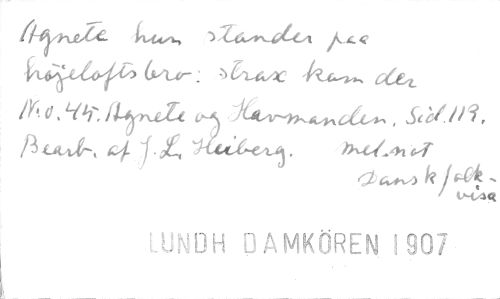 Agnete hun stander paa
höjeloftsbro: strax kom der
N:o. 45. Agnete og Havmanden. Sid. 119.
Bearb. af J. L. Heiberg. mel. not
Dansk folk-
visa
LUNDH DAMKÖREN 1907